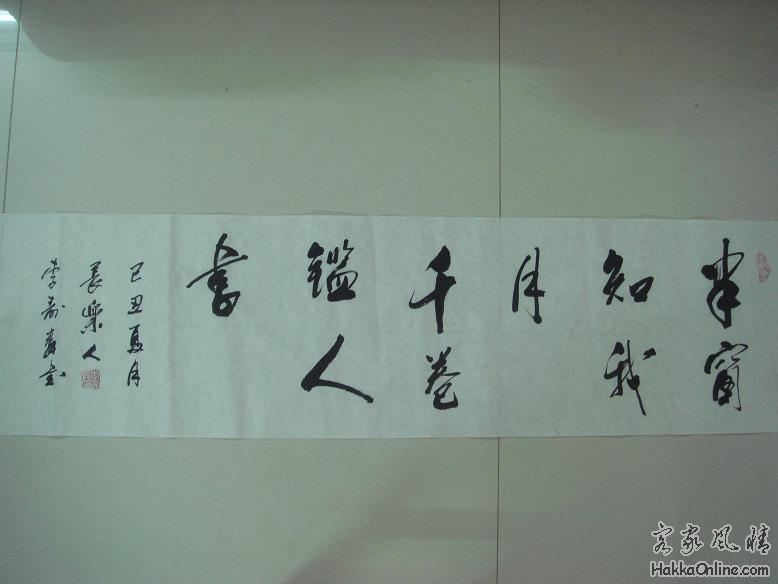 半窗
知我
月
千卷
鑑人
书
己丑夏月
長樂人
李壽
客家风情
HakkaOnline.com